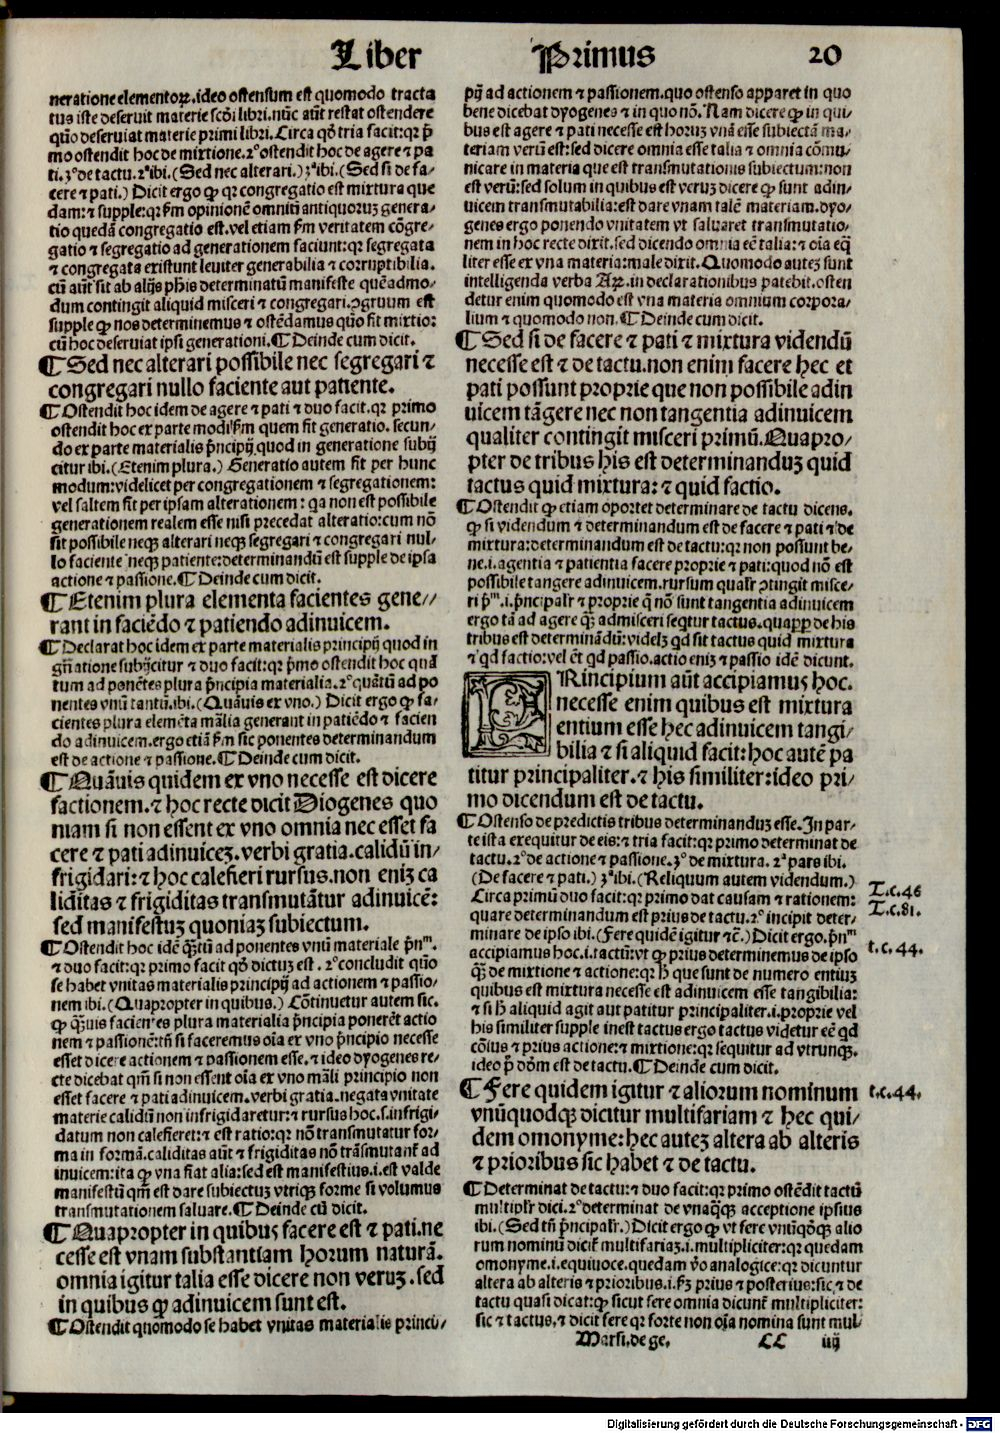 Liber Primus 20
neratione elementoꝝ. ideo ostensum est quomodo tracta
tus iste deseruit materie scd̄i libri. nūc aūt restat ostendere
quō deseruiat materie primi libri. Circa qd̄ tria facit: qꝛ p̄
mo ostendit hoc de mixtione. 2º ostendit hoc de agere ⁊ pa
ti. 3º de tactu. 2ª ibi. (Sed nec alterari.) 3ª ibi. (Sed si de fa-
cere ⁊ pati.) Dicit ergo ꝙ qꝛ congregatio est mixtura que
dam: ⁊ supple: qꝛ ẜm opinionē omniū antiquoruꝫ genera/
tio quedā congregatio est. vel etiam ẜm veritatem cōgre/
gatio ⁊ segregatio ad generationem faciunt: qꝛ segregata
⁊ congregata existunt leuiter generabilia ⁊ corruptibilia.
cū aūt sit ab alijs ph̄is determinatū manifeste quēadmo/
dum contingit aliquid misceri ⁊ congregari. ꝯgruum est
supple ꝙ nos determinemus ⁊ ostēdamus quō fit mixtio:
cū hoc deseruiat ipsi generationi. ¶ Deinde cum dicit.
¶ Sed nec alterari possibile nec segregari ⁊
congregari nullo faciente aut patiente.
¶ Ostendit hoc idem de agere ⁊ pati ⁊ duo facit. qꝛ primo
ostendit hoc ex parte modi ẜm quem fit generatio. secun/
do ex parte materialis p̄ncipij quod in generatione subij
citur ibi. (Etenim plura.) Generatio autem fit per hunc
modum: videlicet per congregationem ⁊ segregationem:
vel saltem fit per ipsam alterationem: qa non est possibile
generationem realem esse nisi precedat alteratio: cum nō
sit possibile neqꝫ alterari neqꝫ segregari ⁊ congregari nul/
lo faciente neqꝫ patiente: determinandū est supple de ipsa
actione ⁊ passione. ¶ Deinde cum dicit.
¶ Etenim plura elementa facientes gene//
rant in faciēdo ⁊ patiendo adinuicem.
¶ Declarat hoc idem ex parte materialis principij quod in
gn̄atione subijcitur ⁊ duo facit: qꝛ p̄mo ostendit hoc quā
tum ad ponētes plura p̄ncipia materialia. 2º quātū ad po
nentes vnū tantū. ibi. (Quāuis ex vno.) Dicit ergo ꝙ fa-
cientes plura elemēta māliā generant in patiēdo ⁊ facien
do adinuicem. ergo etiā ẜm sic ponentes determinandum
est de actione ⁊ passione. ¶ Deinde cum dicit.
¶ Quāuis quidem ex vno necesse est dicere
factionem. ⁊ hoc recte dicit Diogenes quo
niam si non essent ex vno omnia nec esset fa
cere ⁊ pati adinuiceꝫ. verbi gratia. calidū in/
frigidari: ⁊ hoc calefieri rursus. non eniꝫ ca
liditas ⁊ frigiditas transmutātur adinuicē:
sed manifestuꝫ quoniaꝫ subiectum.
¶ Ostendit hoc idē qꝫtū ad ponentes vnū materiale p̄nᵐ.
⁊ duo facit: qꝛ primo facit qd̄ dictuꝫ est. 2º concludit quō
se habet vnitas materialis principij ad actionem ⁊ passio/
nem ibi. (Quapropter in quibus.) Cōtinuetur autem sic.
ꝙ qꝫuis facientes plura materialia p̄ncipia ponerēt actio
nem ⁊ passionē: tn̄ si faceremus oīa ex vno p̄ncipio necesse
esset dicere actionem ⁊ passionem esse. ⁊ ideo dyogenes re/
cte dicebat qm̄ si non essent oīa ex vno māli principio non
esset facere ⁊ pati adinuicem. verbi gratia. negata vnitate
materie calidū non infrigidaretur: ⁊ rursus hoc. s. infrigi/
datum non calefieret: ⁊ est ratio: qꝛ nō transmutatur for/
ma in formā. caliditas aūt ⁊ frigiditas nō trāsmutant̄ ad
inuicem: ita ꝙ vna fiat alia: sed est manifestius. i. est valde
manifestū qm̄ est dare subiectuꝫ vtriqꝫ forme si volumus
transmutationem saluare. ¶ Deinde cū dicit.
¶ Quapropter in quibus facere est ⁊ pati. ne
cesse est vnam substantiam horum naturā.
omnia igitur talia esse dicere non veruꝫ. sed
in quibus ꝙ adinuicem sunt est.
¶ Ostendit quomodo se habet vnitas materialis princi/
pij ad actionem ⁊ passionem. quo ostenso apparet in quo
bene dicebat dyogenes ⁊ in quo nō. Nam dicere ꝙ in qui/
bus est agere ⁊ pati necesse est horuꝫ vnā esse subiectā ma/
teriam verū est: sed dicere omnia esse talia ⁊ omnia cōmu/
nicare in materia que est transmutationis subiectum: non
est verū: sed solum in quibus est veruꝫ dicere ꝙ sunt adin/
uicem transmutabilia: est dare vnam talē materiam. dyo/
genes ergo ponendo vnitatem vt saluaret transmutatio/
nem in hoc recte dixit. sed dicendo omnia eē talia: ⁊ oīa eq̄
liter esse ex vna materia: male dixit. Quomodo auteꝫ sunt
intelligenda verba Aꝝ. in declarationibus patebit. osten
detur enim quomodo est vna materia omnium corpora/
lium ⁊ quomodo non. ¶ Deinde cum dicit.
¶ Sed si de facere ⁊ pati ⁊ mixtura videndū
necesse est ⁊ de tactu. non enim facere hec et
pati possunt proprie que non possibile adin
uicem tāgere nec non tangentia adinuicem
qualiter contingit misceri primū. Quapro/
pter de tribus his est determinanduꝫ quid
tactus quid mixtura: ⁊ quid factio.
¶ Ostendit ꝙ etiam oportet determinare de tactu dicens.
ꝙ si videndum ⁊ determinandum est de facere ⁊ pati ⁊ de
mixtura: determinandum est de tactu: qꝛ non possunt be/
ne. i. agentia ⁊ patientia facere proprie ⁊ pati: quod nō est
possibile tangere adinuicem. rursum qualr̄ ꝯtingit misce/
ri p̄ᵐ. i. p̄ncipalr̄ ⁊ proprie q̄ nō sunt tangentia adinuicem
ergo tā ad agere qꝫ admisceri seqtur tactus. quapꝑ de his
tribus est determinādū: videlꝫ qd sit tactus quid mixtura
⁊ qd factio: vel ēt qd passio. actio eniꝫ ⁊ passio idē dicunt.
PRincipium aūt accipiamus hoc.
necesse enim quibus est mixtura
entium esse hec adinuicem tangi/
bilia ⁊ si aliquid facit: hoc autē pa
titur principaliter. ⁊ his similiter: ideo pri/
mo dicendum est de tactu.
¶ Ostenso de predictis tribus determinanduꝫ esse. In par/
te ista exequitur de eis: ⁊ tria facit: qꝛ primo determinat de
tactu. 2º de actione ⁊ passione. 3º de mixtura. 2ª pars ibi.
(De facere ⁊ pati.) 3ª ibi. (Reliquum autem videndum.)
Circa primū duo facit: qꝛ primo dat causam ⁊ rationem:
quare determinandum est prius de tactu. 2º incipit deter/
minare de ipso ibi. (Fere quidē igitur ⁊c̄.) Dicit ergo. p̄nᵐ
accipiamus hoc. i. tactū: vt ꝙ prius determinemus de ipso
qꝫ de mixtione ⁊ actione: qꝛ h̄ que sunt de numero entiuꝫ
quibus est mixtura necesse est adinuicem esse tangibilia:
⁊ si h̄ aliquid agit aut patitur principaliter. i. proprie vel
his similiter supple inest tactus ergo tactus videtur eē qd
cōius ⁊ prius actione: ⁊ mixtione: qꝛ sequitur ad vtrunqꝫ.
ideo p̄ dd̄m est de tactu. ¶ Deinde cum dicit.
¶ Fere quidem igitur ⁊ aliorum nominum
vnūquodqꝫ dicitur multifariam ⁊ hec qui/
dem omonyme: hec auteꝫ altera ab alteris
⁊ prioribus sic habet ⁊ de tactu.
¶ Determinat de tactu: ⁊ duo facit: qꝛ primo ostēdit tactū
multiplr̄ dici. 2º determinat de vnaqꝫqꝫ acceptione ipsius
ibi. (Sed tn̄ p̄ncipalr̄.) Dicit ergo ꝙ vt fere vnūqd̄qꝫ alio
rum nominū dicit̄ multifariaꝫ. i. multipliciter: qꝛ quedam
omonyme. i. equiuoce. quedam v̄o analogice: qꝛ dicuntur
altera ab alteris ⁊ prioribus. i. ẜꝫ prius ⁊ posterius: sic ⁊ de
tactu quasi dicat: ꝙ sicut fere omnia dicunt̄ multipliciter:
sic ⁊ tactus. ⁊ dicit fere qꝛ forte non oīa nomina sunt mul/
Marsi. de ge. CC iij
T.c.46
T.c.81.
t.c.44.
t.c.44.
Digitalisierung gefördert durch die Deutsche Forschungsgemeinschaft - DFG